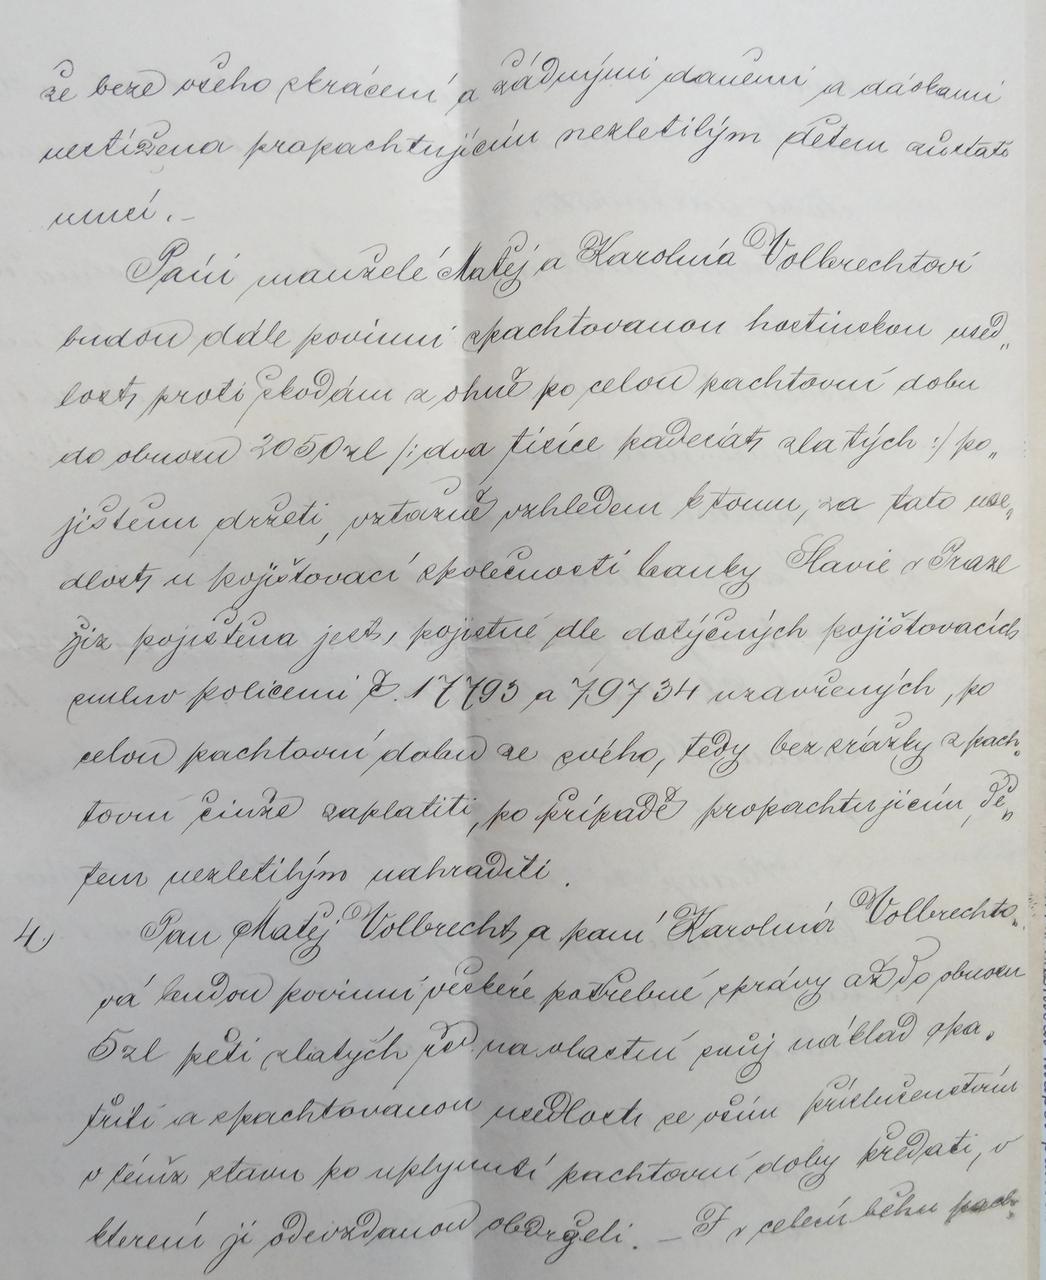 že beze všeho zkrácení a žádnými daněmi a dávkami
neztížena propachtujícím nezletilým dětem zůstati
musí. –
Páni manželé Matěj a Karolina Volbrechtovi
budou dále povinni spachtovanou hostinskou used„
lost proti škodám z ohně po celou pachtovní dobu
do obnosu 2050 zl /: dva tisíce padesát zlatých :/ po„
jištěnu držeti, vztažně vzhledem k tomu, že tato use„
dlost u pojišťovací společnosti banky Slavie v Praze
již pojištěna jest, pojistné dle dotýčných pojišťovacích
smluv policemi č. 17793 a 79734 uzavřených, po
celou pachtovní dobu ze svého, tedy bez srážky z pach„
tovní činže zaplatiti, po případě propachtujícím dě„
tem nezletilým nahraditi.
4) Pan Matěj Volbrecht a paní Karolina Volbrechto„
vá budou povinni veškeré potřebné správy až do obnosu
5 zl pěti zlatých na vlastní svůj náklad opa„
třiti a spachtovanou usedlost se vším příslušenstvím
v témž stavu po uplynutí pachtovní doby předati, v
kterém ji odevzdanou obdrželi. – I v celém běhu pach„